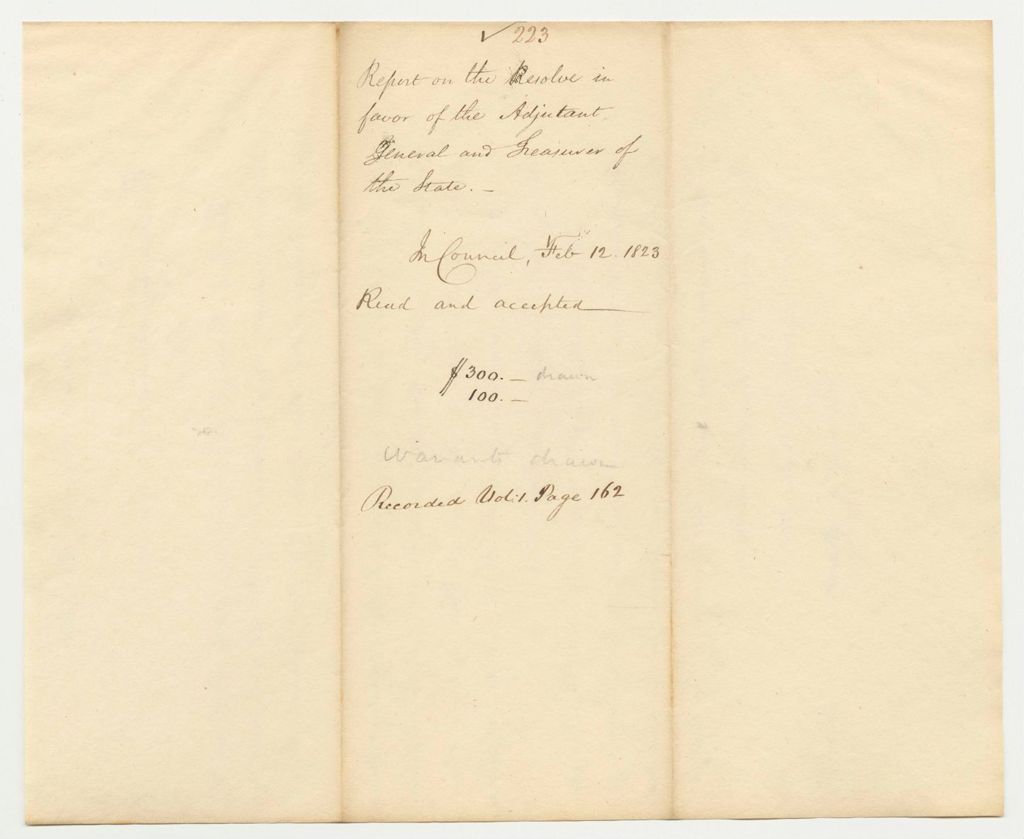 ✓ 223
Report on the Resolve in
favor of the Adjutant
General and Treasurer of
the State. —
In Council, Feb 12. 1823
Read and accepted
$300. — drawn
100. —
Warrants drawn
Recorded Vol. 1. Page 162